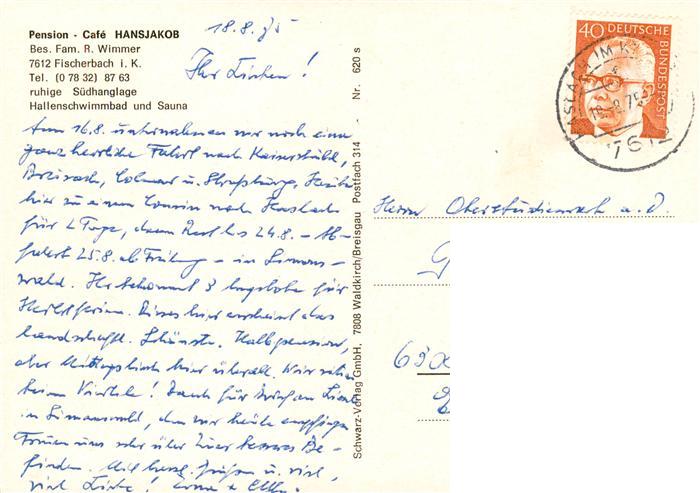 Pension - Café HANSJAKOB
Bes. Fam. R. Wimmer
7612 Fischerbach i. K.
Tel. (0 78 32) 87 63
ruhige Südhanglage
Hallenschwimmbad und Sauna
18.8.75
Ihr Lieben!
Am 16.8. unternahmen wir noch eine
ganz herrliche Fahrt nach Kaiserstuhl,
Breisach, Colmar u. Straßburg. Heute
hier zu einem Cousin nach Haslach
für 2 Tage, dann Rest bis 24.8. - Ab-
fahrt 25.8. ab Freiburg - in Simons-
wald. Ihr bekommt 3 Angebote für
Herbstferien. Dieses hier erscheint das
landschaftl. Schönste. Halbpension,
aber Mittagstisch hier überall. Wir
beim Viertele! Dank für Brief an
in Simonswald, den wir heute empfingen
Freuen uns sehr über Be-
finden. Mit herzl. Grüßen u. viel,
viel Liebe!
Schwarz-Verlag GmbH. 7808 Waldkirch/Breisgau Postfach 314 - Nr. 620 s
40 DEUTSCHE BUNDESPOST
HASLACH IM K
18.8.75
7612
Herrn Oberstudienrat a.D.
G
6300